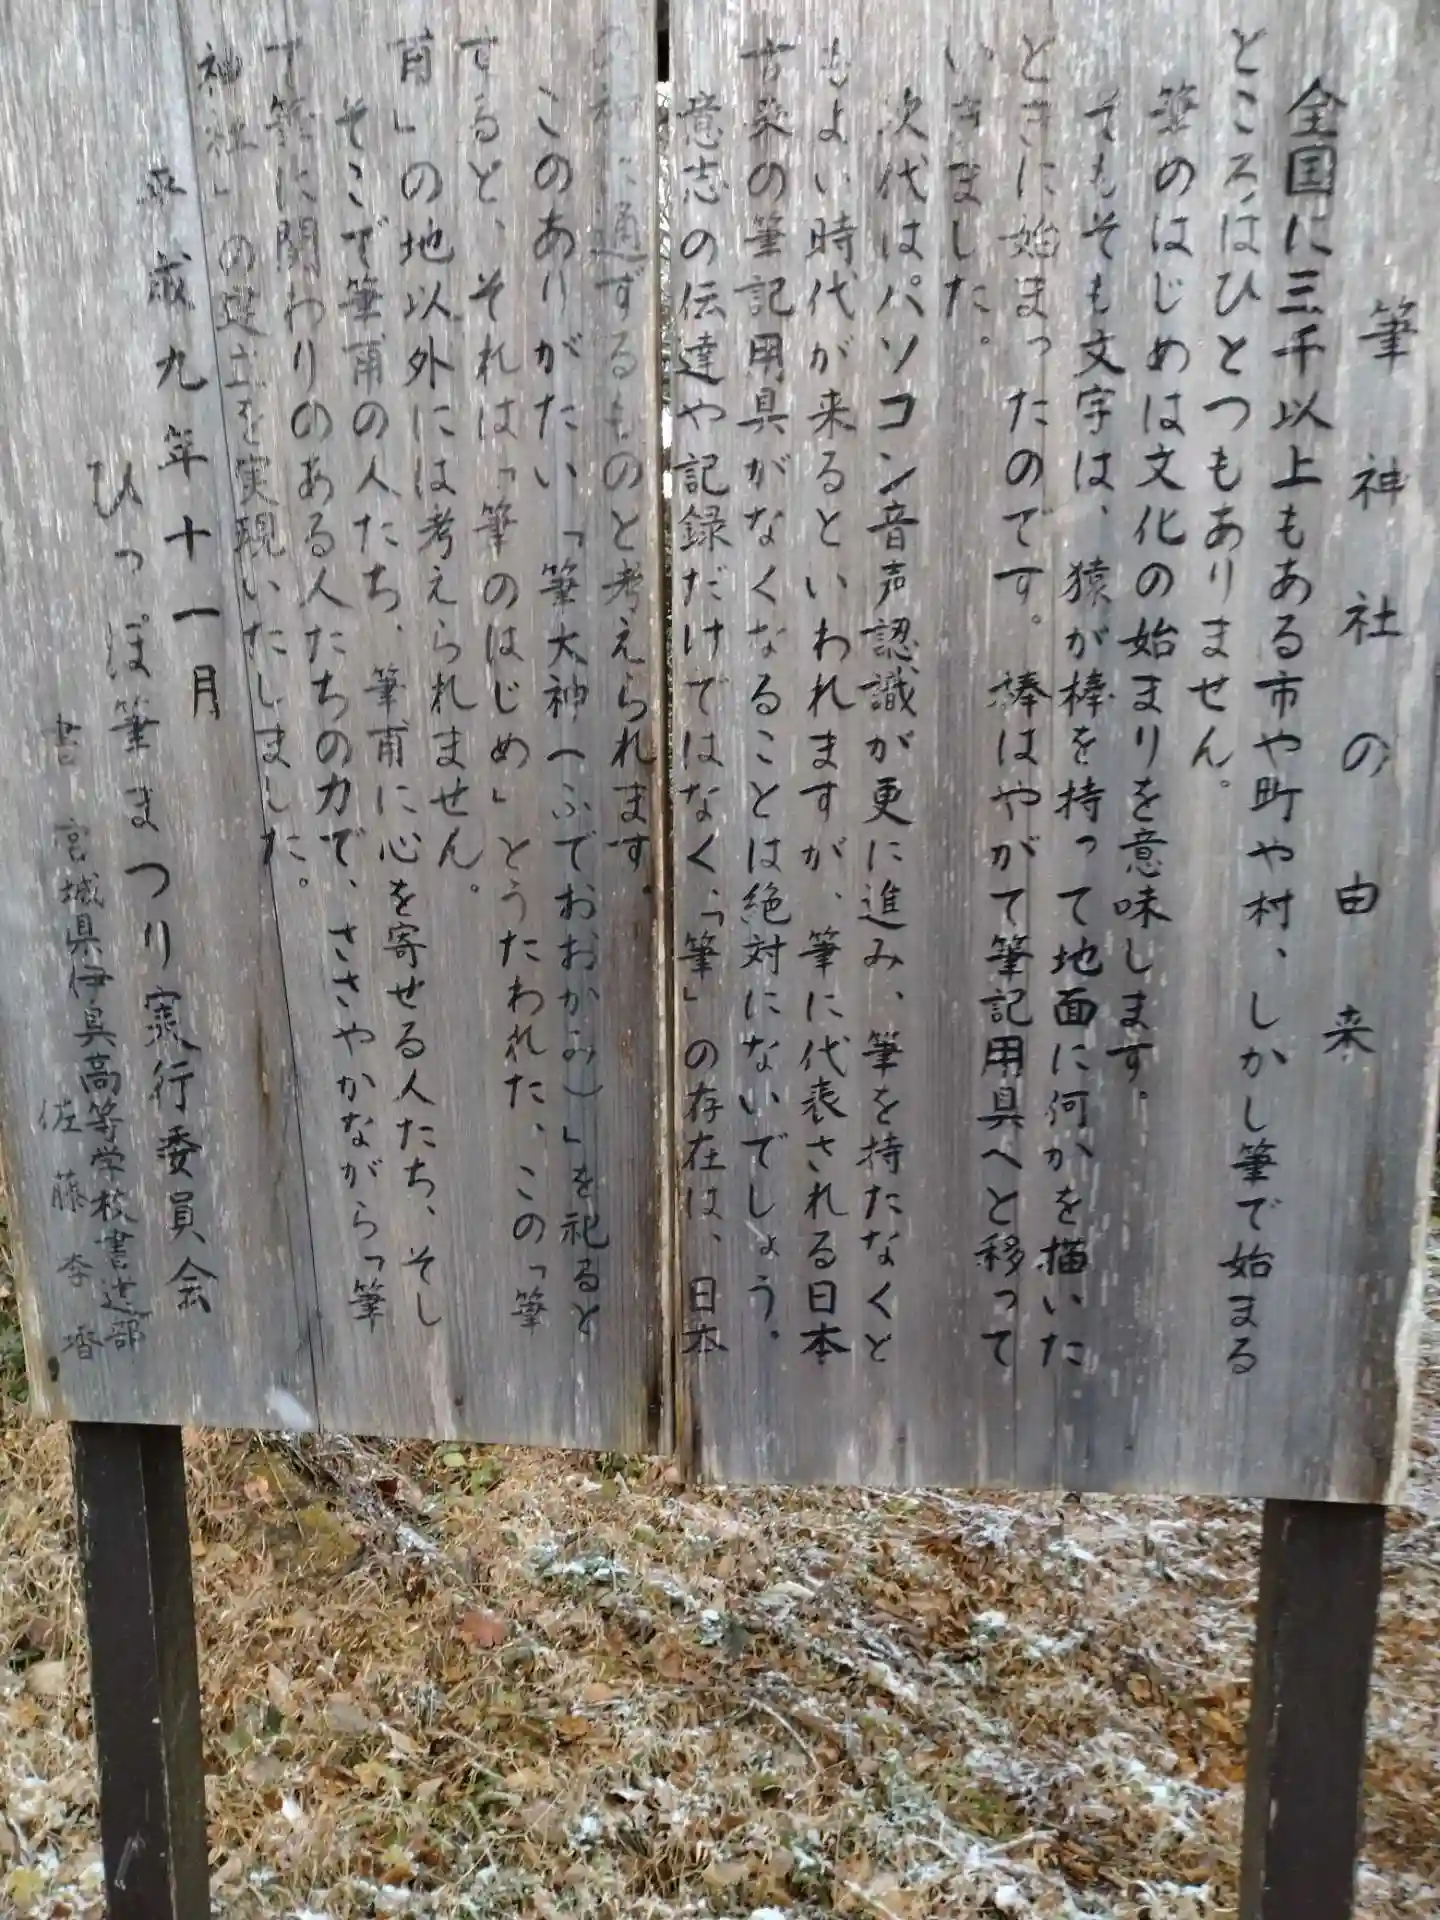 筆神社の由来
全国に三千以上もある市や町や村、しかし筆で始まる
ところはひとつもありません。
筆のはじめは文化の始まりを意味します。
そもそも文字は、猿が棒を持って地面に何かを描いた
ときに始まったのです。棒はやがて筆記用具へと移って
いきました。
次代はパソコン音声認識が更に進み、筆を持たなくと
もよい時代が来るといわれますが、筆に代表される日本
古来の筆記用具がなくなることは絶対にないでしょう。
意志の伝達や記録だけではなく、「筆」の存在は、日本
の神に通ずるものと考えられます。
このありがたい「筆大神(ふでおおかみ)」を祀ると
すると、それは「筆のはじめ」とうたわれた、この「筆
甫」の地以外には考えられません。
そこで筆甫の人たち、筆甫に心を寄せる人たち、そし
て筆に関わりのある人たちの力で、ささやかながら「筆
神社」の建立を実現いたしました。
平成九年十一月
ひっぽ筆まつり実行委員会
書 宮城県伊具高等学校書道部
佐藤 李香